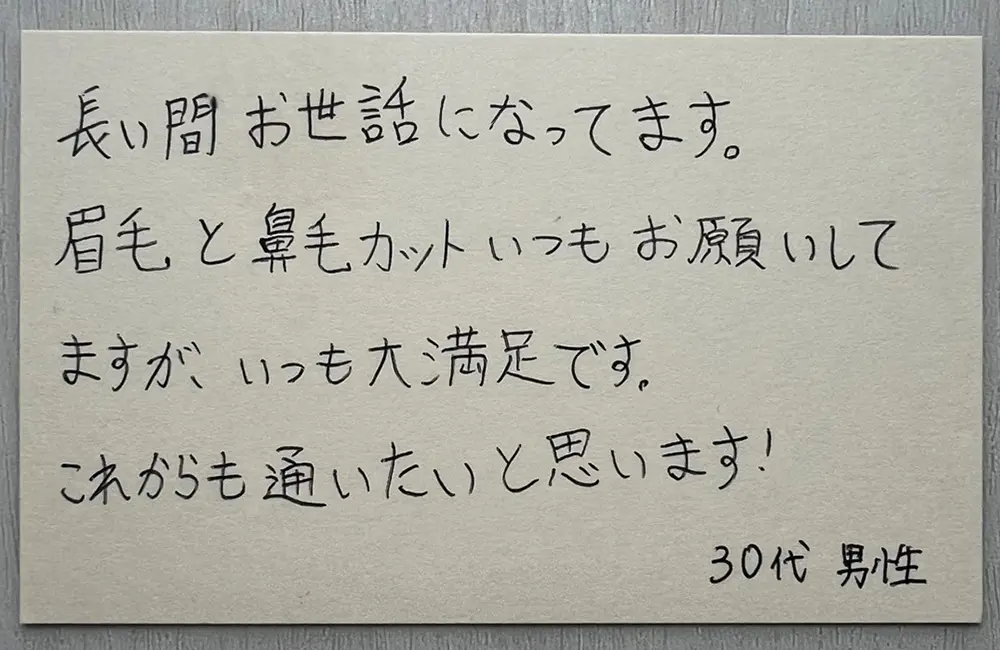 長い間お世話になってます。
眉毛と鼻毛カットいつもお願いして
ますが、いつも大満足です。
これからも通いたいと思います!
30代 男性